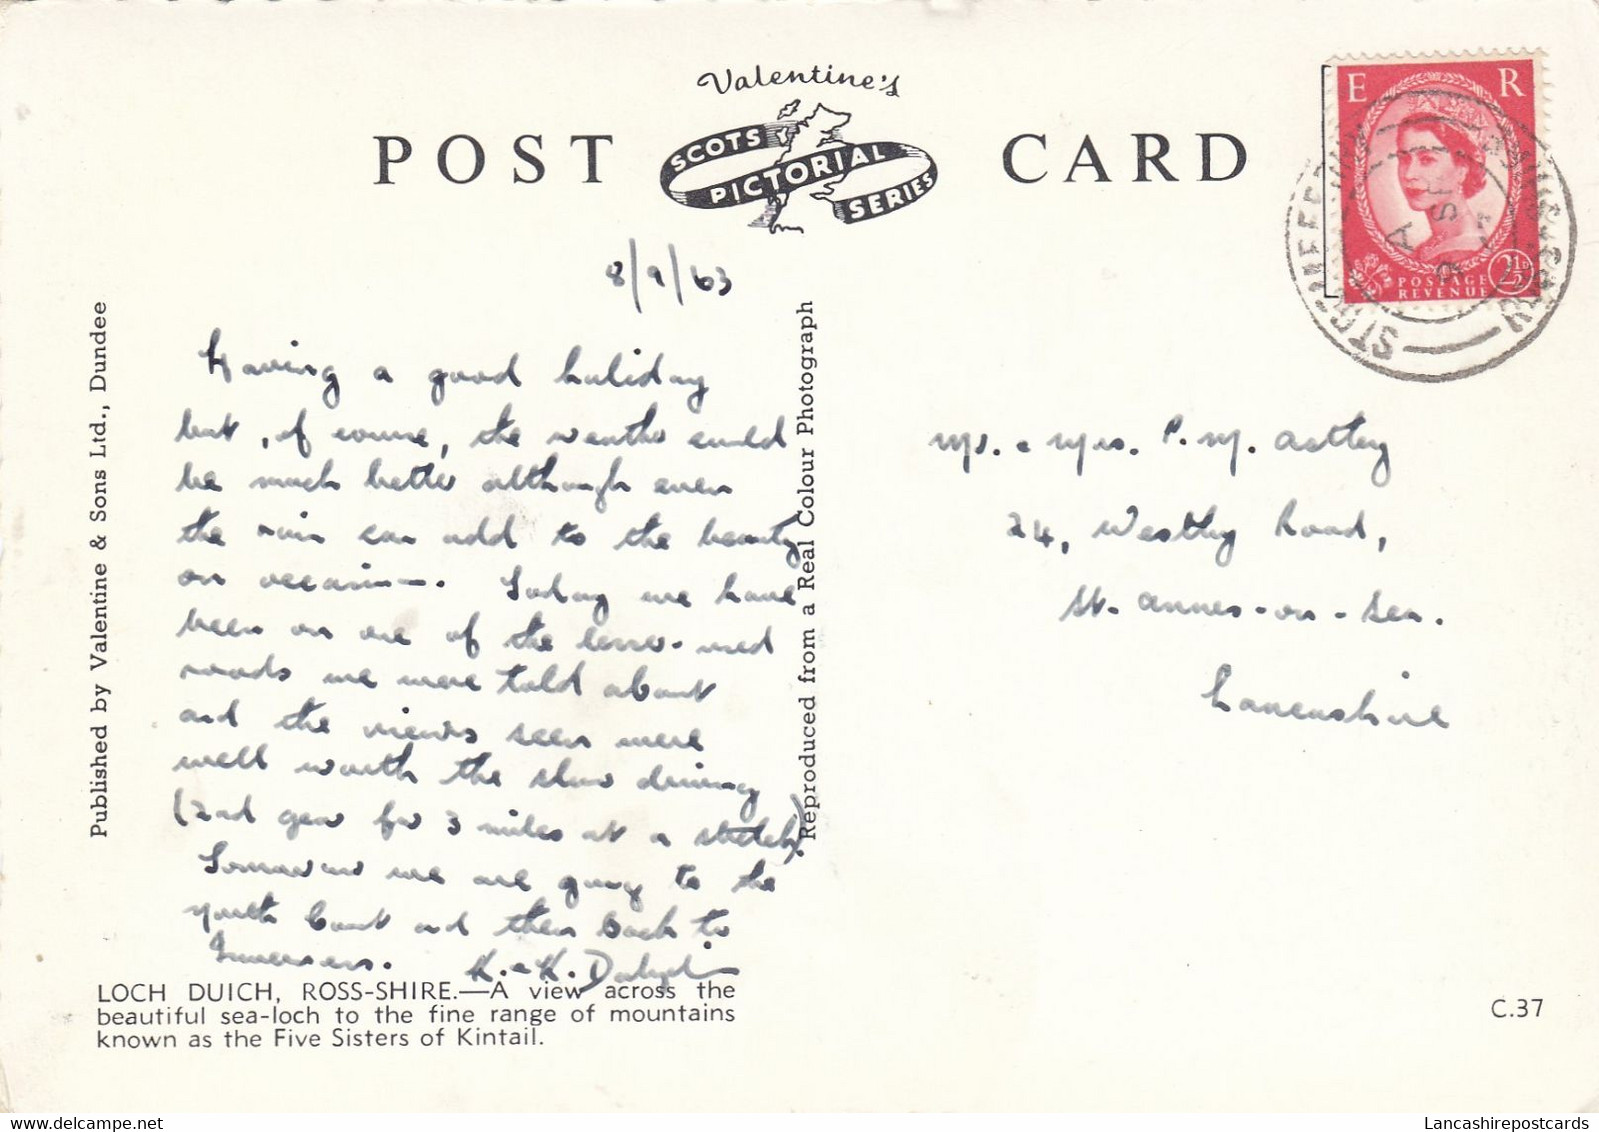 Valentine's
POST CARD
SCOTS
PICTORIAL
SERIES
E R
POSTAGE
REVENUE
2½D
STROMEFERRY
ROSS-SHIRE
8/9/63
Having a good holiday
but, of course, the weather could
be much better although even
the rain can add to the beauty
on occasion. Today we have
been on one of the lesser-used
roads we were told about
and the views seen were
well worth the slow driving
(2nd gear for 3 miles at a stretch).
Tomorrow we are going to the
North Coast and then back to
Inverness. K. & K.
Mr. & Mrs. P. M. Astley
24, Westby Road,
St. Annes-on-Sea.
Lancashire
Published by Valentine & Sons Ltd., Dundee
Reproduced from a Real Colour Photograph
LOCH DUICH, ROSS-SHIRE.—A view across the
beautiful sea-loch to the fine range of mountains
known as the Five Sisters of Kintail.
C.37
Lancashirepostcards